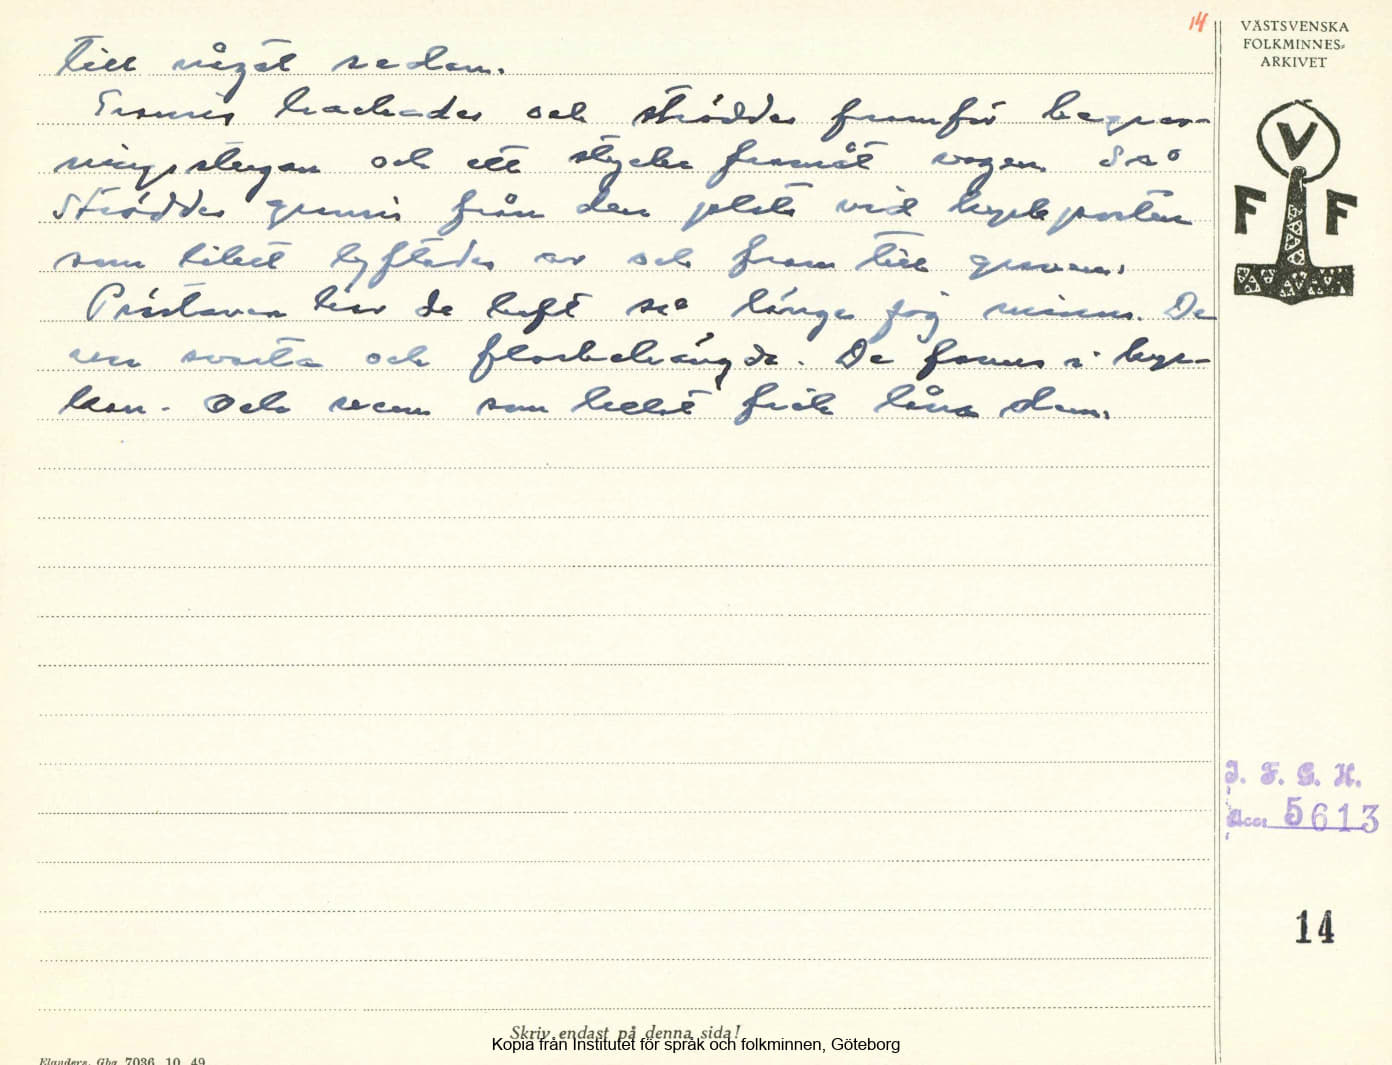 14
VÄSTSVENSKA
FOLKMINNES-
ARKIVET
V
F F
till något sedan.
Granris hackades och ströddes framför begrav-
ningsstugan och ett stycke framåt vägen. Så
ströddes granris från den plats vid kyrkporten
som liket lyftades av och fram till graven.
Prästaven har de haft så länge jag minns. De
va svarta och florbehängda. De fanns i kyr-
kan. Och vem som helst fick låna dem.
I. F. G. H.
Acc. 5613
14
Skriv endast på denna sida!
Kopia från Institutet för språk och folkminnen, Göteborg
Elanders, Gbg 7036 10 49